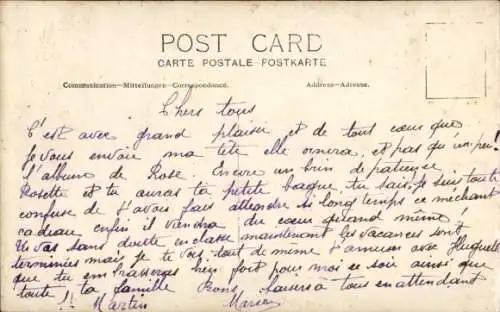 POST CARD
CARTE POSTALE—POSTKARTE
Communication—Mitteilungen—Correspondencel. Address—Adresse.
Chers tous
C'est avec grand plaisir et de tout cœur que
je vous envoie ma tête elle ornera, et pas qu'un peu
l'album de Rose. Encore un brin de patience
Rosette et tu auras ta petite bague, tu sais, je suis toute
confuse de t'avoir fais attendre si long temps ce méchant
cadeau enfin il viendra du cœur quand même!
Tu vas sans doute en classe maintenant les vacances sont
terminées mais je te vois tout de même t'amuser avec Huguette
que tu embrasseras bien fort pour moi ce soir ainsi que
toute ta famille Bons baisers à tous en attendant
!! Martin Marie